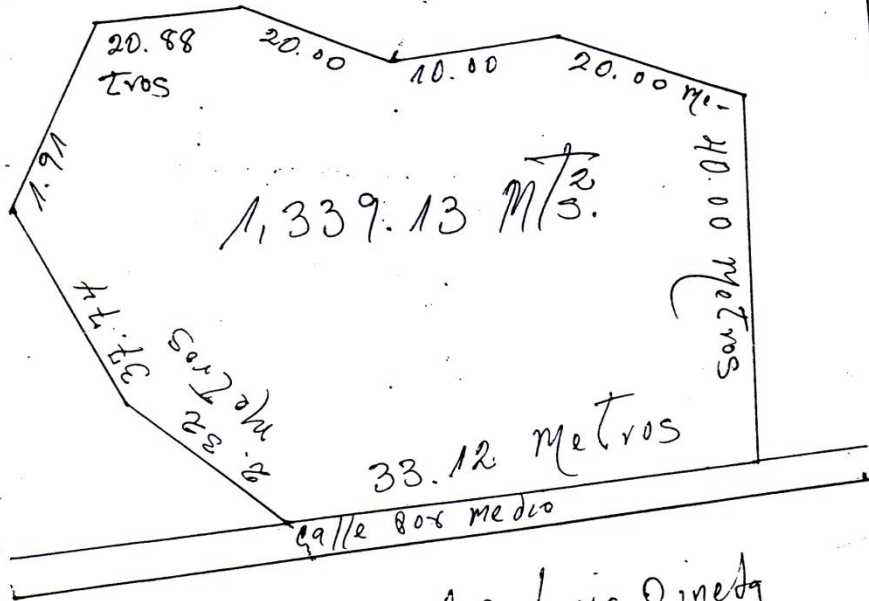 20.88
tros
20.00
10.00
20.00 me-
1.91
40.00 metros
1,339.13 Mts.²
37.74
2.32
metros
33.12 Metros
Calle por medio